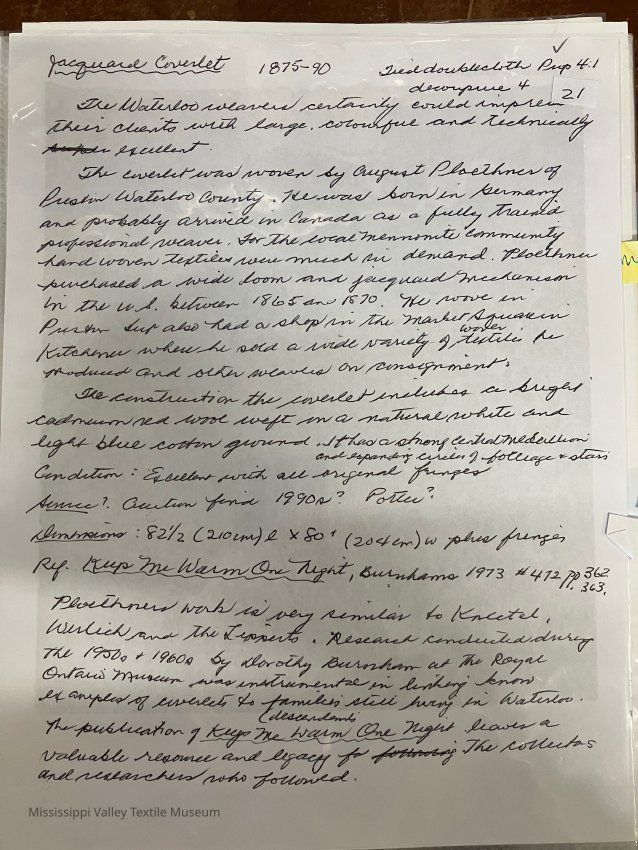 Jacquard Coverlet 1875-90 Tied doublecloth Prop 4:1
decoupure 4
21
The Waterloo weavers certainly could impress
their clients with large, colourful and technically
excellent.
The coverlet was woven by August Ploethner of
Preston Waterloo County. He was born in Germany
and probably arrived in Canada as a fully trained
professional weaver. For the local Mennonite community
hand woven textiles were much in demand. Ploethner
purchased a wide loom and jacquard mechanism
in the U.S. between 1865 and 1870. He wove in
Preston but also had a shop in the Market Square in
Kitchener where he sold a wide variety of woven textiles he
produced and other weavers on consignment.
The construction the coverlet includes a bright
cadmium red wool weft in a natural white and
light blue cotton ground. It has a strong central medallion
and expanding circles of folleage & stars
Condition: Excellent with all original fringes
Source? Auction find 1990s? Potter?
Dimensions: 82½ (210cm) l x 80" (204cm) w plus fringes
Ref. Keep Me Warm One Night, Burnhams 1973 #472 pp. 362
363.
Ploethners work is very similar to Knechtel,
Werlich and the Lipperts. Research conducted during
the 1950s & 1960s by Dorothy Burnham at the Royal
Ontario Museum was instrumental in linking know
examples of coverlets to families still living in Waterloo.
(descendants
The publication of Keep Me Warm One Night leaves a
valuable resource and legacy for following the collectors
and researchers who followed.
Mississippi Valley Textile Museum